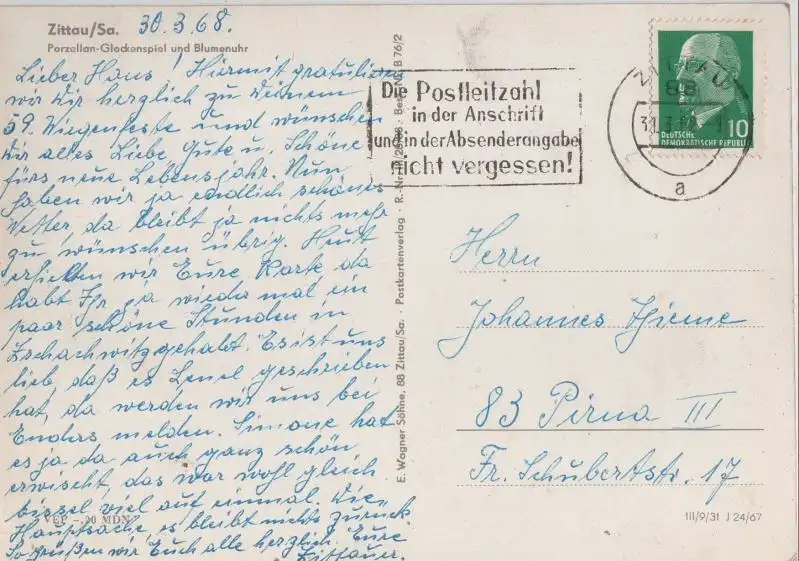 Zittau/Sa. 30.3.68.
Porzellan-Glockenspiel und Blumenuhr
Lieber Hans! Hiermit gratulieren
wir Dir herzlich zu Deinem
59. Wiegenfeste und wünschen
Dir alles Liebe Gute u. Schöne
fürs neue Lebensjahr. Nun
haben wir ja endlich schönes
Wetter, da bleibt ja nichts mehr
zu wünschen übrig. Heut
erhielten wir Eure Karte, da
habt Ihr ja wieder mal ein
paar schöne Stunden in
Zschachwitz gehabt. Es ist uns
lieb, daß es Lenel geschrieben
hat, da werden wir uns bei
Endas melden. Simone hat
es ja da auch ganz schön
erwischt, das war wohl gleich
bissel viel auf einmal. Die
Hauptsache, es bleibt nichts zurück.
So grüßen wir Euch alle herzlich Eure
Zittauer.
VEP – 20 MDN
E. Wagner Söhne, 88 Zittau/Sa. · Postkartenverlag · B 76/2
Die Postleitzahl
in der Anschrift
und in der Absenderangabe
nicht vergessen!
ZITTAU
88
a
10
DEUTSCHE
DEMOKRATISCHE REPUBLIK
Herrn
Johannes Thieme
83 Pirna III
Fr. Schubertstr. 17
III/9/31 J 24/67